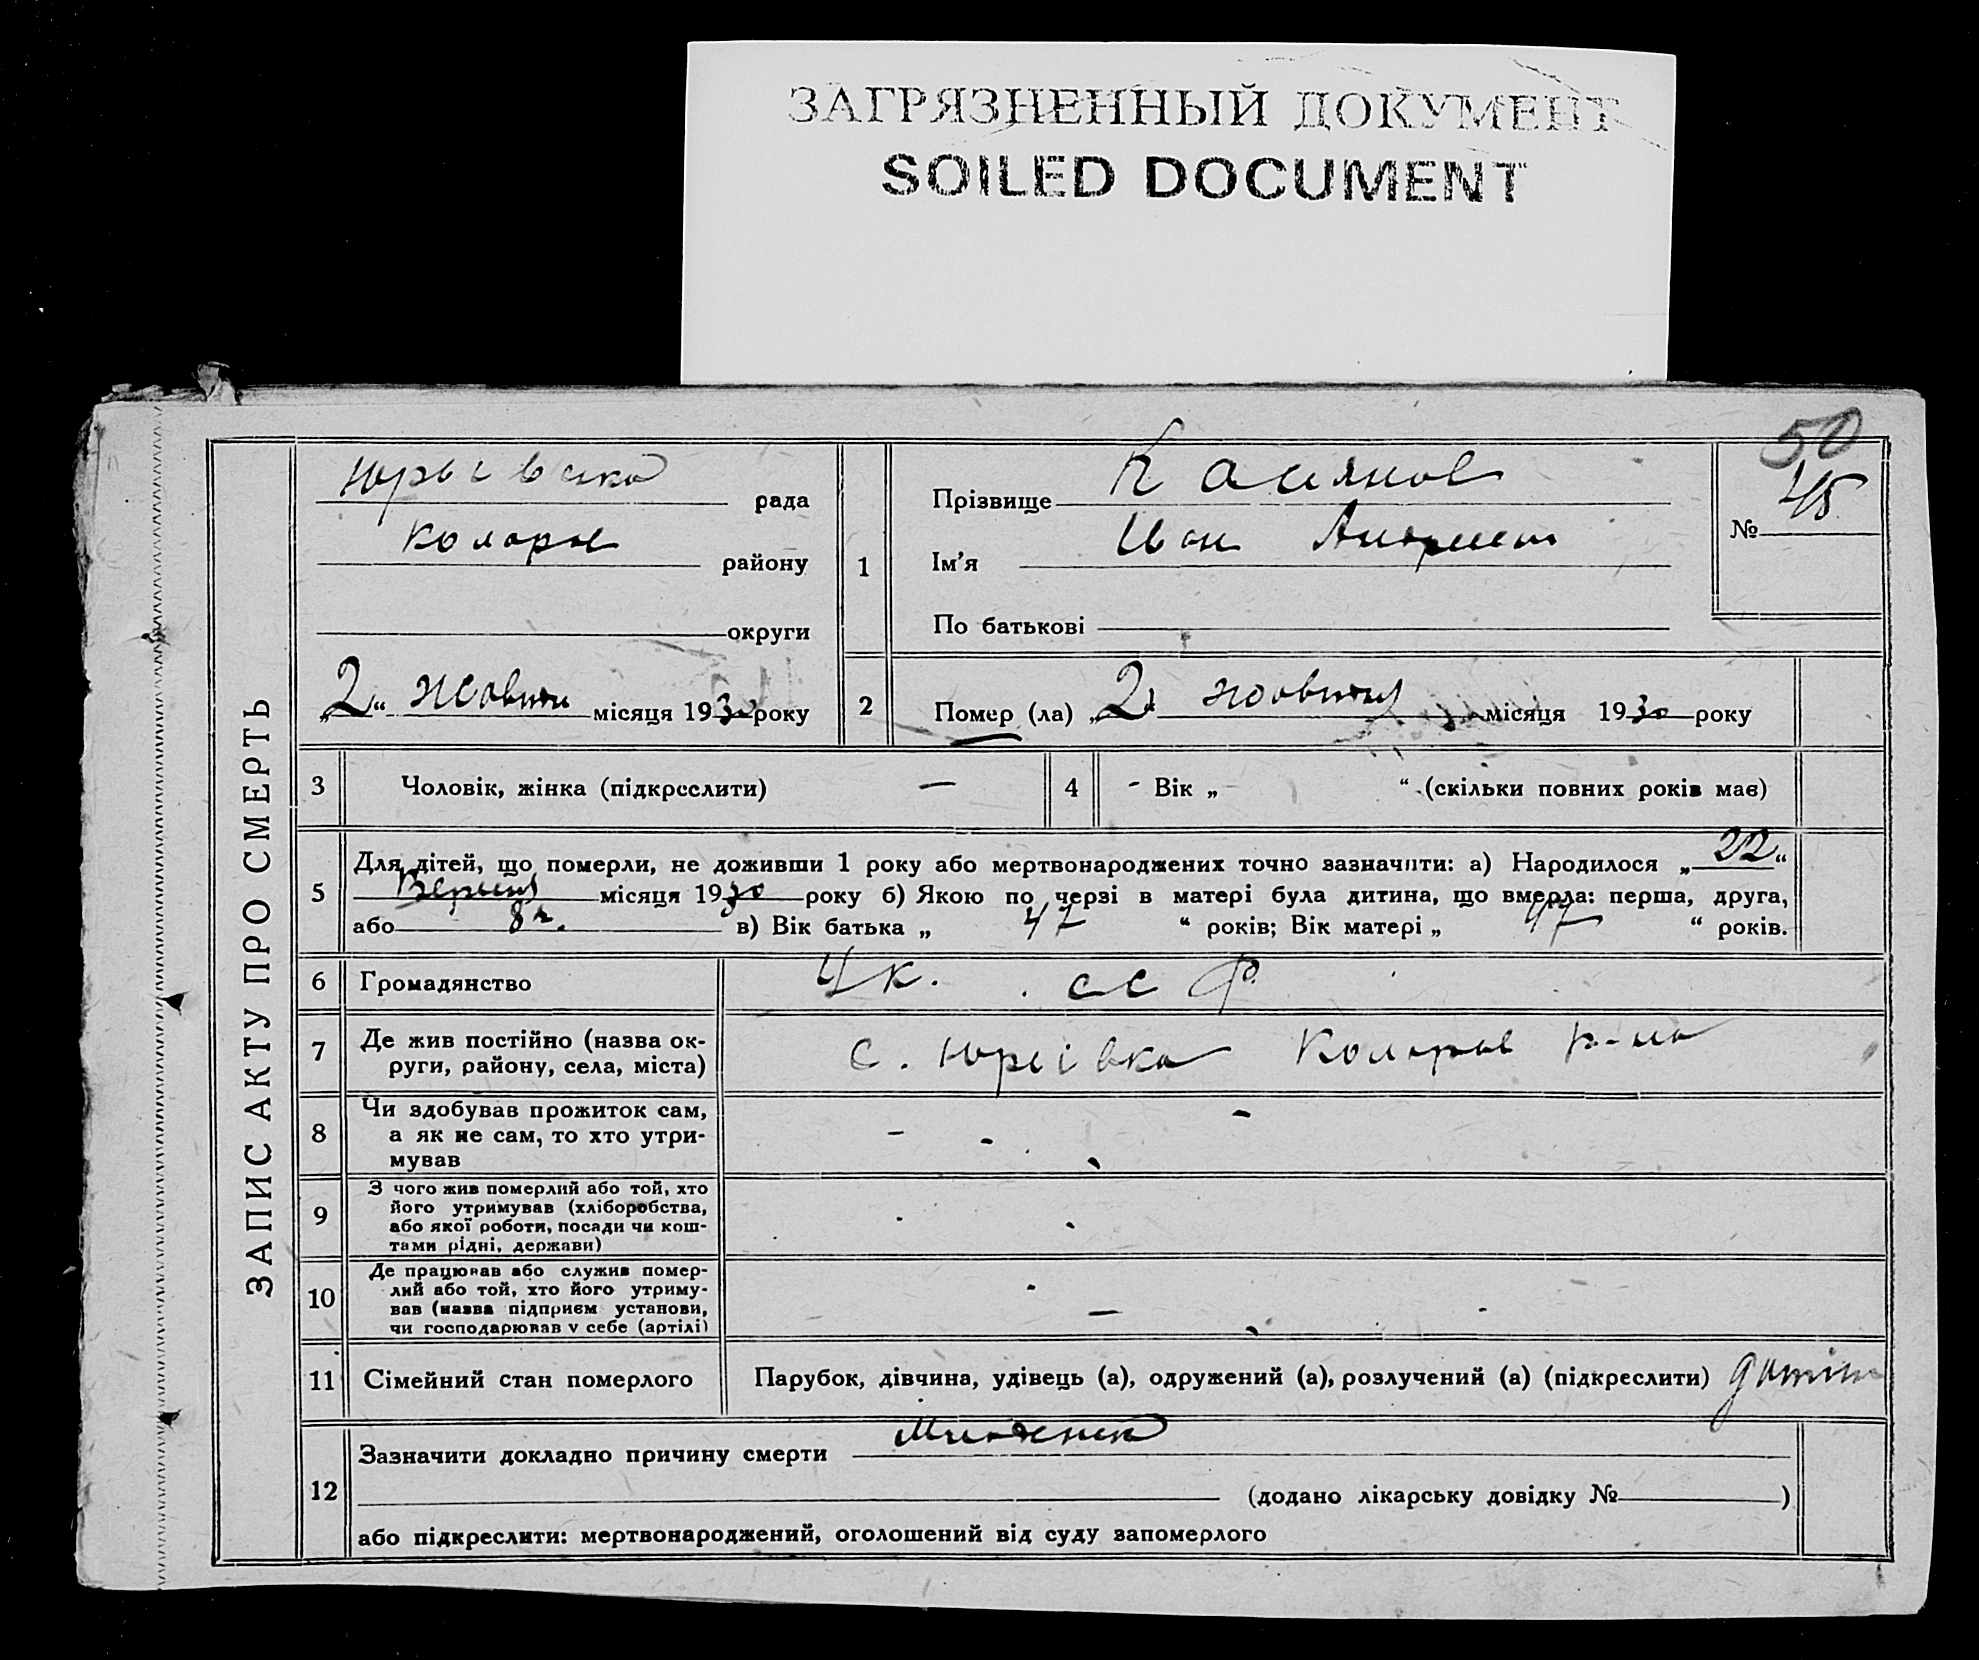 ЗАГРЯЗНЕННЫЙ ДОКУМЕНТ
SOILED DOCUMENT
50
ЗАПИС АКТУ ПРО СМЕРТЬ
Юрьівска рада
Коларов району
округи
„2“ жовтн місяця 1930 року
1
Прізвище Касянов
Ім'я Иван
По батькові
№ 45
2
Помер (ла) „2“ жовтня місяця 1930 року
3
Чоловік, жінка (підкреслити) —
4
- Вік „ “ (скільки повних років має)
5
Для дітей, що померли, не доживши 1 року або мертвонароджених точно зазначити: а) Народилося „22“
Версня місяця 1930 року б) Якою по черзі в матері була дитина, що вмерла: перша, друга,
або 8 в) Вік батька „ 47 “ років; Вік матері „ 47 “ років.
6
Громадянство
Ук. ССР
7
Де жив постійно (назва ок-
руги, району, села, міста)
с. Юрьівка Коларов р-на
8
Чи здобував прожиток сам,
а як не сам, то хто утри-
мував
9
З чого жив померлий або той, хто
його утримував (хліборобства,
або якої роботи, посади чи кош-
тами рідні, держави)
10
Де працював або служив помер-
лий або той, хто його утриму-
вав (назва підприєм установи,
чи господарював у себе (артілі)
—
11
Сімейний стан померлого
Парубок, дівчина, удівець (а), одружений (а), розлучений (а) (підкреслити)
12
Зазначити докладно причину смерти
(додано лікарську довідку № )
або підкреслити: мертвонароджений, оголошений від суду запомерлого